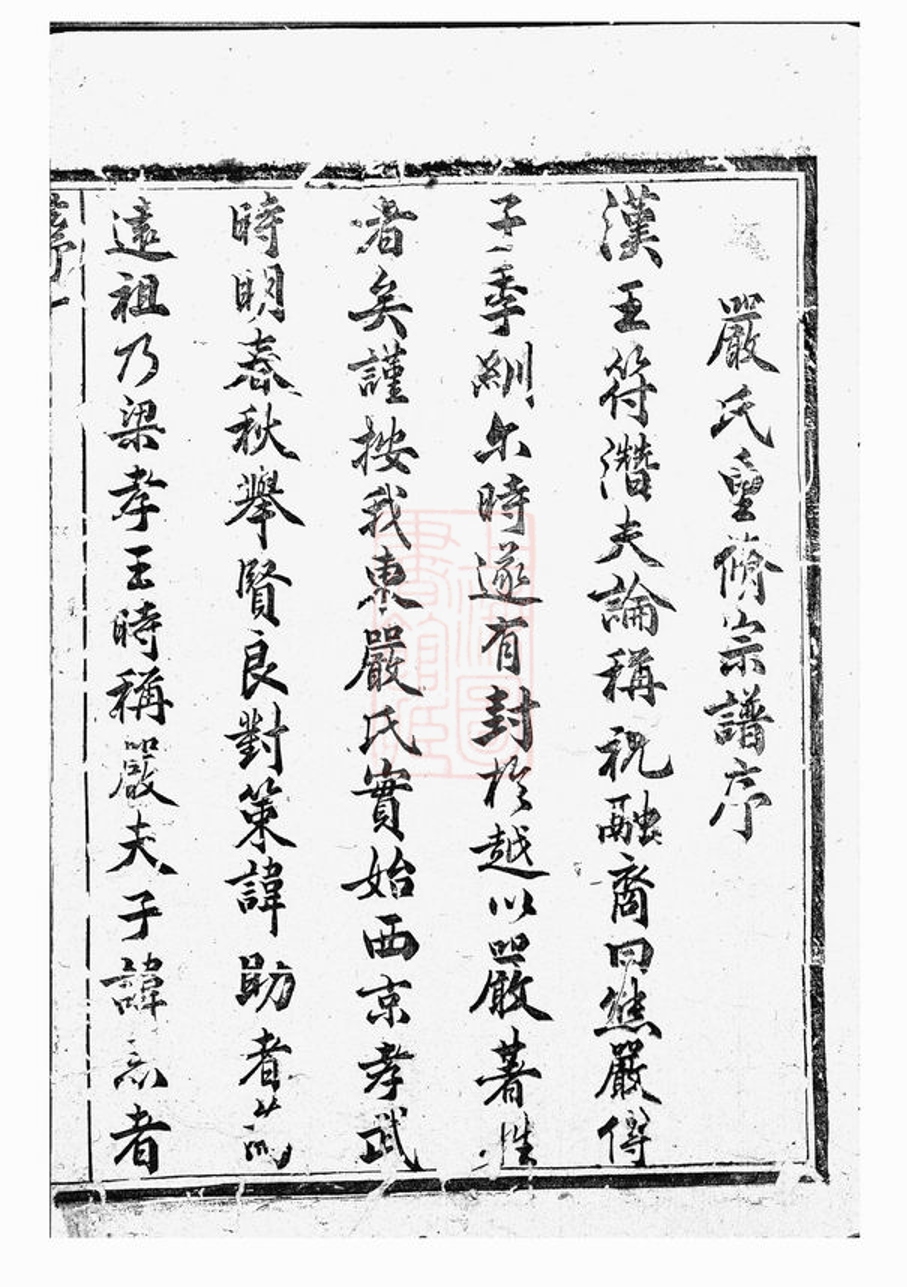 嚴氏重脩宗譜序
漢王符潛夫論稱祝融裔曰熊嚴得
子季紃尔時遂有封於越以嚴著姓
者矣謹按我東嚴氏實始西京孝武
時明春秋舉賢良對策諱助者
遠祖乃梁孝王時稱嚴夫子諱忌者
序一